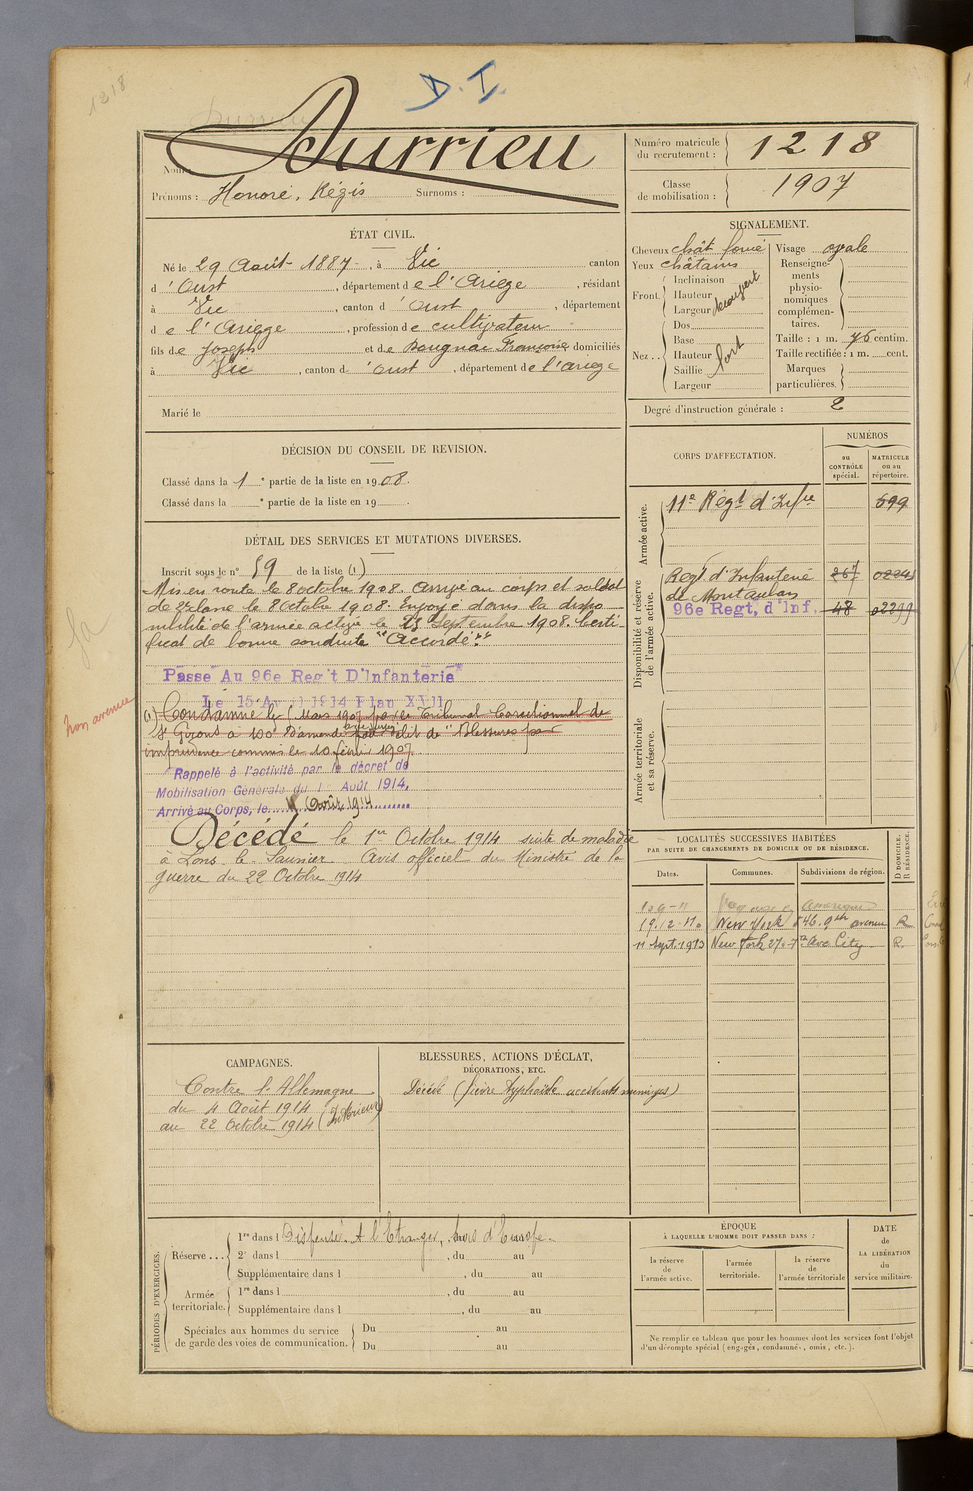 1218
D. I.
Nom : Durrieu
Prénoms : Honoré, Régis Surnoms :
Numéro matricule du recrutement : 1218
Classe de mobilisation : 1907
ÉTAT CIVIL.
Né le 29 Août 1887, à Vic canton
d'Oust, département de l'Ariège, résidant
à Vic, canton d'Oust, département
de l'Ariège, profession de cultivateur
fils de Joseph et de Françoise domiciliés
à Vic, canton d'Oust, département de l'Ariège
Marié le
SIGNALEMENT.
Cheveux chât foncé
Yeux châtains
Front
Inclinaison
Hauteur
Largeur
Nez...
Dos
Base
Hauteur
Saillie
Largeur
fort
Visage ovale
Renseignements physionomiques complémentaires.
Taille : 1 m. 76 centim.
Taille rectifiée : 1 m. cent.
Marques particulières.
Degré d'instruction générale : 2
DÉCISION DU CONSEIL DE REVISION.
Classé dans la 1e partie de la liste en 1908.
Classé dans la e partie de la liste en 19
CORPS D'AFFECTATION.
NUMÉROS
AU CONTRÔLE spécial.
MATRICULE ou au répertoire.
Armée active.
11e Régt d'Infrie 699
Disponibilité et réserve de l'armée active.
Régt d'Infanterie 267
de Montauban
96e Regt, d'Inf. 48 02299
Armée territoriale et sa réserve.
DÉTAIL DES SERVICES ET MUTATIONS DIVERSES.
Inscrit sous le n° 59 de la liste (1)
Mis en route le 8 octobre 1908. Arrivé au corps et soldat
de 2e classe le 8 octobre 1908. Envoyé dans la dispo
nibilité de l'armée active le 25 Septembre 1908. Certi-
ficat de bonne conduite "Accordé".
Passé Au 96e Reg't D'Infanterie
Le 15 Avril 1914 Plan XVII
non avenue
(1) Condamné le 1 Mars 1907 par le Tribunal Correctionnel de
St Girons à 100f d'amende avec sursis pour délit de "Blessures par
imprudence commis le 10 février 1907
Rappelé à l'activité par le décret de
Mobilisation Générale du 1 Août 1914,
Arrivé au Corps, le Août 1914
Décédé le 1er Octobre 1914 suite de maladie
à Lons le Saunier. Avis officiel du Ministre de la
guerre du 22 Octobre 1914
LOCALITÉS SUCCESSIVES HABITÉES
PAR SUITE DE CHANGEMENTS DE DOMICILE OU DE RÉSIDENCE.
Dates. Communes. Subdivisions de région.
D DOMICILE. R RÉSIDENCE.
Amérique
19.12.11 New York 546. 9th avenue R
11 Sept. 1913 New York 27.7th Ave. City R.
CAMPAGNES.
Contre l'Allemagne
du 4 Août 1914
au 22 Octobre 1914 (Intérieur)
BLESSURES, ACTIONS D'ÉCLAT,
DÉCORATIONS, ETC.
Décédé (fièvre typhoïde accidents méningés)
PÉRIODES D'EXERCICES.
Réserve...
1re dans l Dispensé. A l'Etranger, hors d'Europe.
2e dans l , du au
Supplémentaire dans l , du au
Armée territoriale.
1re dans l , du au
Supplémentaire dans l , du au
Spéciales aux hommes du service de garde des voies de communication.
Du au
Du au
ÉPOQUE
À LAQUELLE L'HOMME DOIT PASSER DANS :
la réserve de l'armée active.
l'armée territoriale.
la réserve de l'armée territoriale
DATE de LA LIBÉRATION du service militaire.
Ne remplir ce tableau que pour les hommes dont les services font l'objet
d'un décompte spécial (engagés, condamnés, omis, etc.).